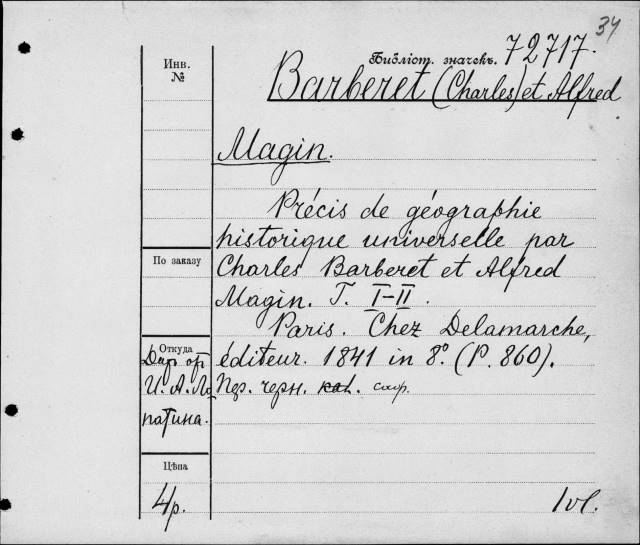 34
Библіот. значекъ. 72717.
Инв.
№
Barberet (Charles) et Alfred
Magin.
Précis de géographie
historique universelle par
По заказу
Charles Barberet et Alfred
Magin. T. I–II.
Paris. Chez Delamarche,
Откуда
éditeur. 1841 in 8º. (P. 860).
Даръ
И. А. Ло
патина.
Пер. черн.
Цѣна
4р.
1 vl.